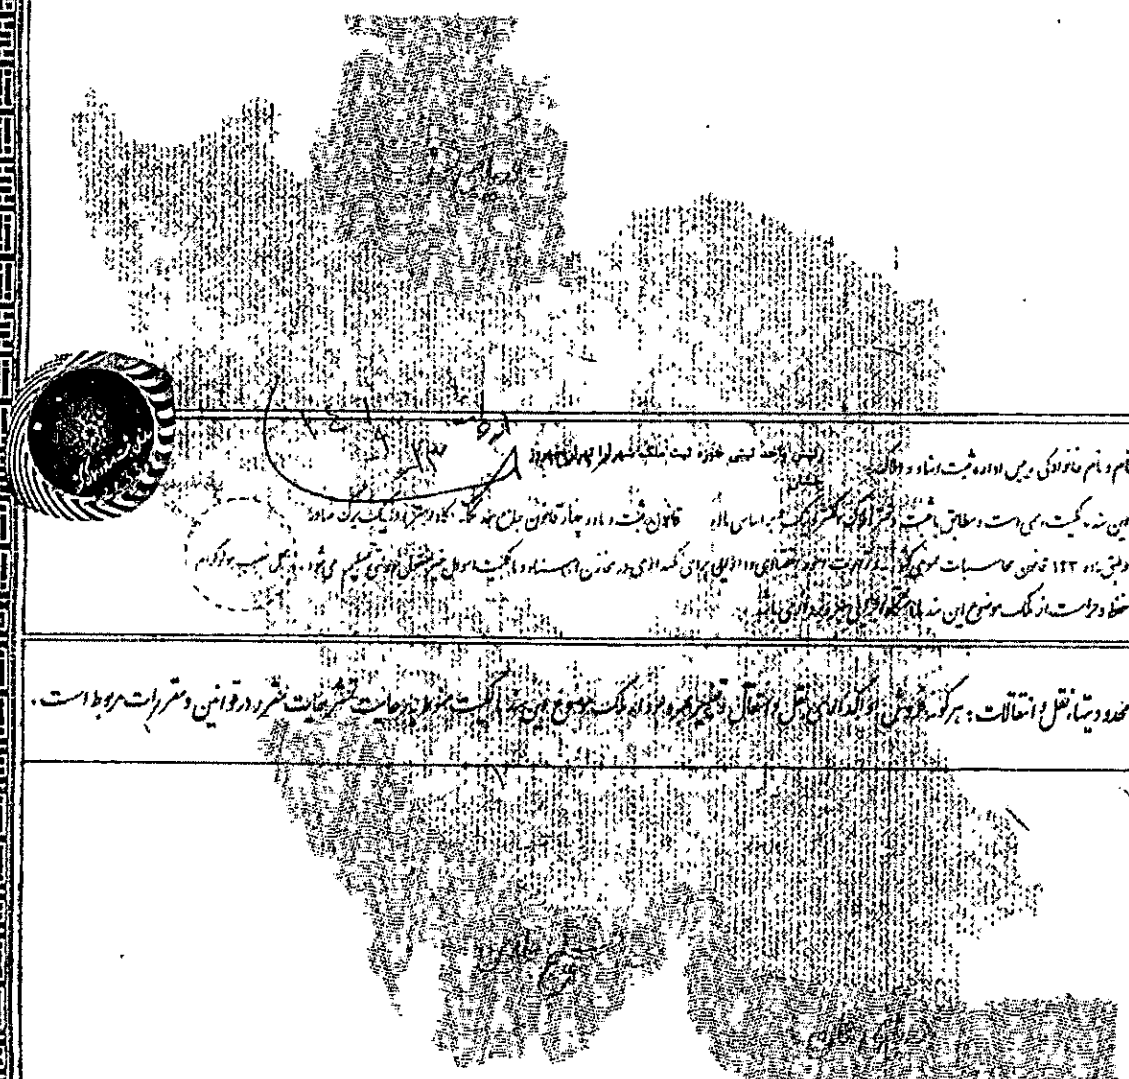 نام و نام خانوادگی رییس اداره ثبت اسناد و املاک
رئیس واحد ثبتی حوزه ثبت ملک
این سند مالکیت رسمی است و مطابق با ثبت دفتر املاک الکترونیک بر اساس ماده قانون ثبت و ماده چهار قانون جامع حد نگار کاداستر در یک برگ صادر
وطبق ماده ۱۲۳ قانون محاسبات عمومی کشور وزارت امور اقتصادی و دارایی برای نگهداری در مخازن اسناد مالکیت اموال غیر منقول دولتی تسلیم می شود. محل نصب هولوگرام
حفظ و حراست از ملک موضوع این سند با دستگاه اجرایی بهره بردار می باشد.
محدودیتها، نقل و انتقالات: هرگونه فروش، واگذاری، نقل و انتقال، تغییر بهره بردار ملک موضوع این سند مالکیت منوط به رعایت تشریفات مقرر در قوانین و مقررات مربوط است.
دریای خزر
خلیج فارس
دریای عمان